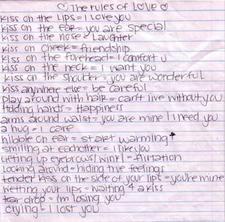 ♡ The rules of LOVE ♡
kiss on the lips = I love you
kiss on the ear = you are special
kiss on the nose = Laughter
kiss on cheek = friendship
kiss on the forehead = I comfort u
kiss on the neck = I want you
kiss on the shoulder = you are wonderful
kiss anywhere else = be careful
play around with hair = can't live without you
holding hands = Happiness
arms around waist = you are mine I need you
a hug = I care
nibble on ear = start warming
smiling at eachother = I like you
lifting up eyebrows/wink = flirtation
Looking around = hiding true feelings
tender kiss on the side of your lips = you're mine
wetting your lips = waiting 4 a kiss
tear drop = I'm losing you
crying = I lost you